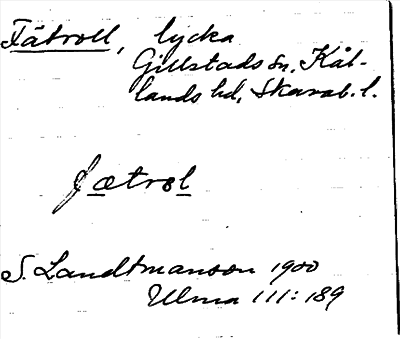 Fätroll, lycka
Gillstads sn, Kål-
lands hd, Skarab. l.
fætrol
S. Landtmanson 1900
Ulma 111:189